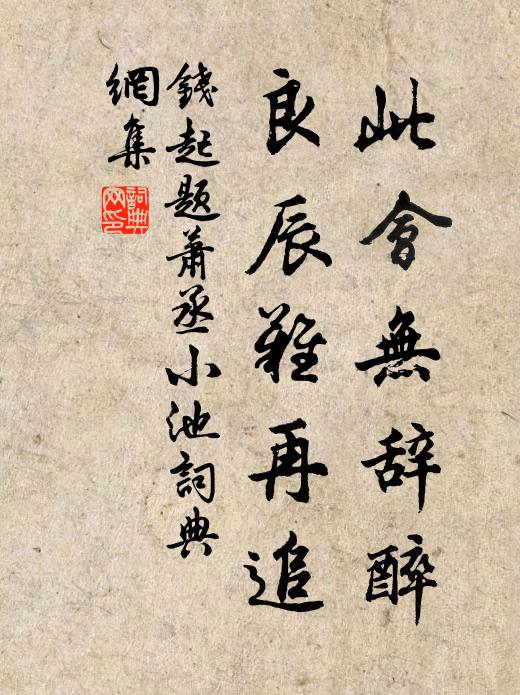 此會無辞醉
良辰難再追
錢起題蕭丞小池詞典
網集
詞典
网印